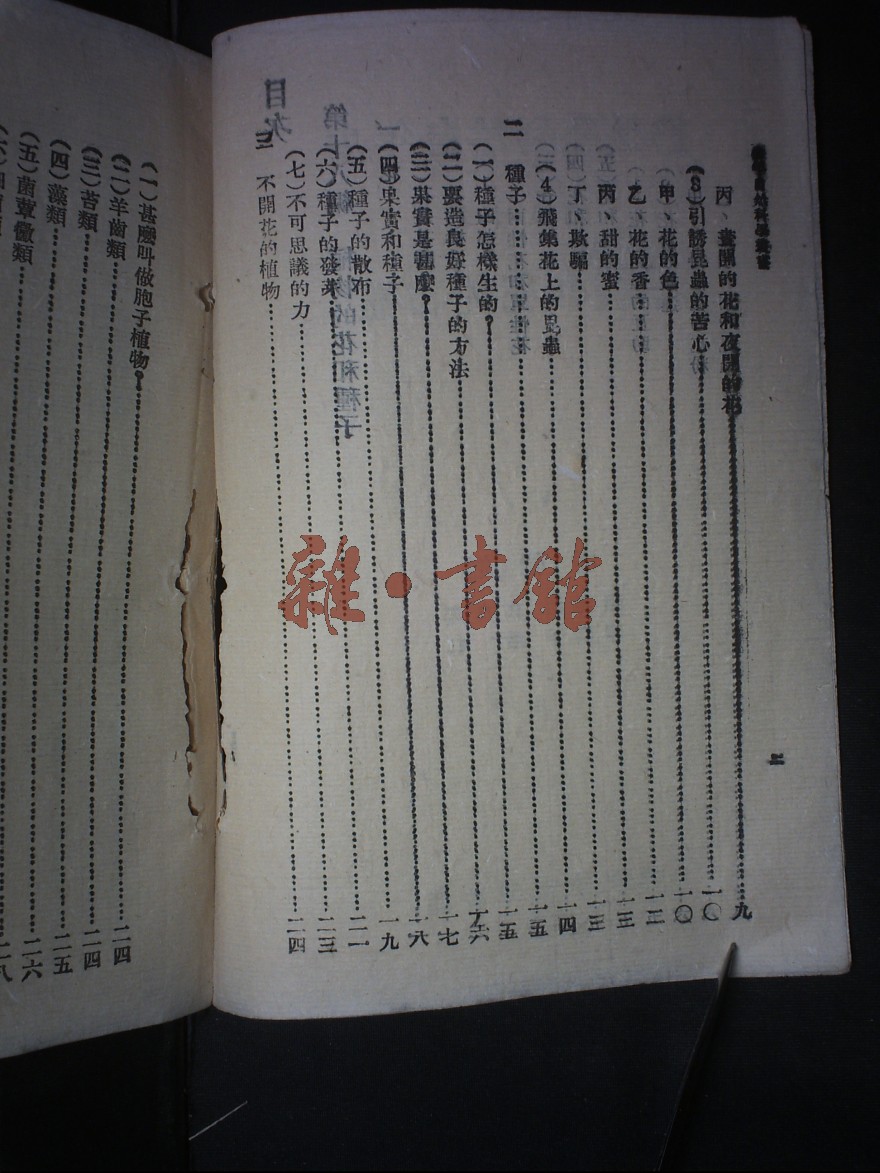 自然科學叢書
二
丙、晝開的花和夜開的花……九
(3)引誘昆蟲的苦心……一〇
甲、花的色……一〇
乙、花的香……一二
丙、甜的蜜……一三
丁、欺騙……一三
(4)飛集花上的昆蟲……一四
二 種子……一五
(一)種子怎樣生的……一五
(二)要造良好種子的方法……一六
(三)果實是甚麼……一七
(四)果實和種子……一八
(五)種子的散布……一九
(六)種子的發芽……二一
(七)不可思議的力……二三
三 不開花的植物……二四
目次
第十八
植物的花和種子
一
(一)甚麼叫做胞子植物……二四
(二)羊齒類……二四
(三)苔類……二五
(四)藻類……二六
(五)菌蕈黴類……二八
雜·書館